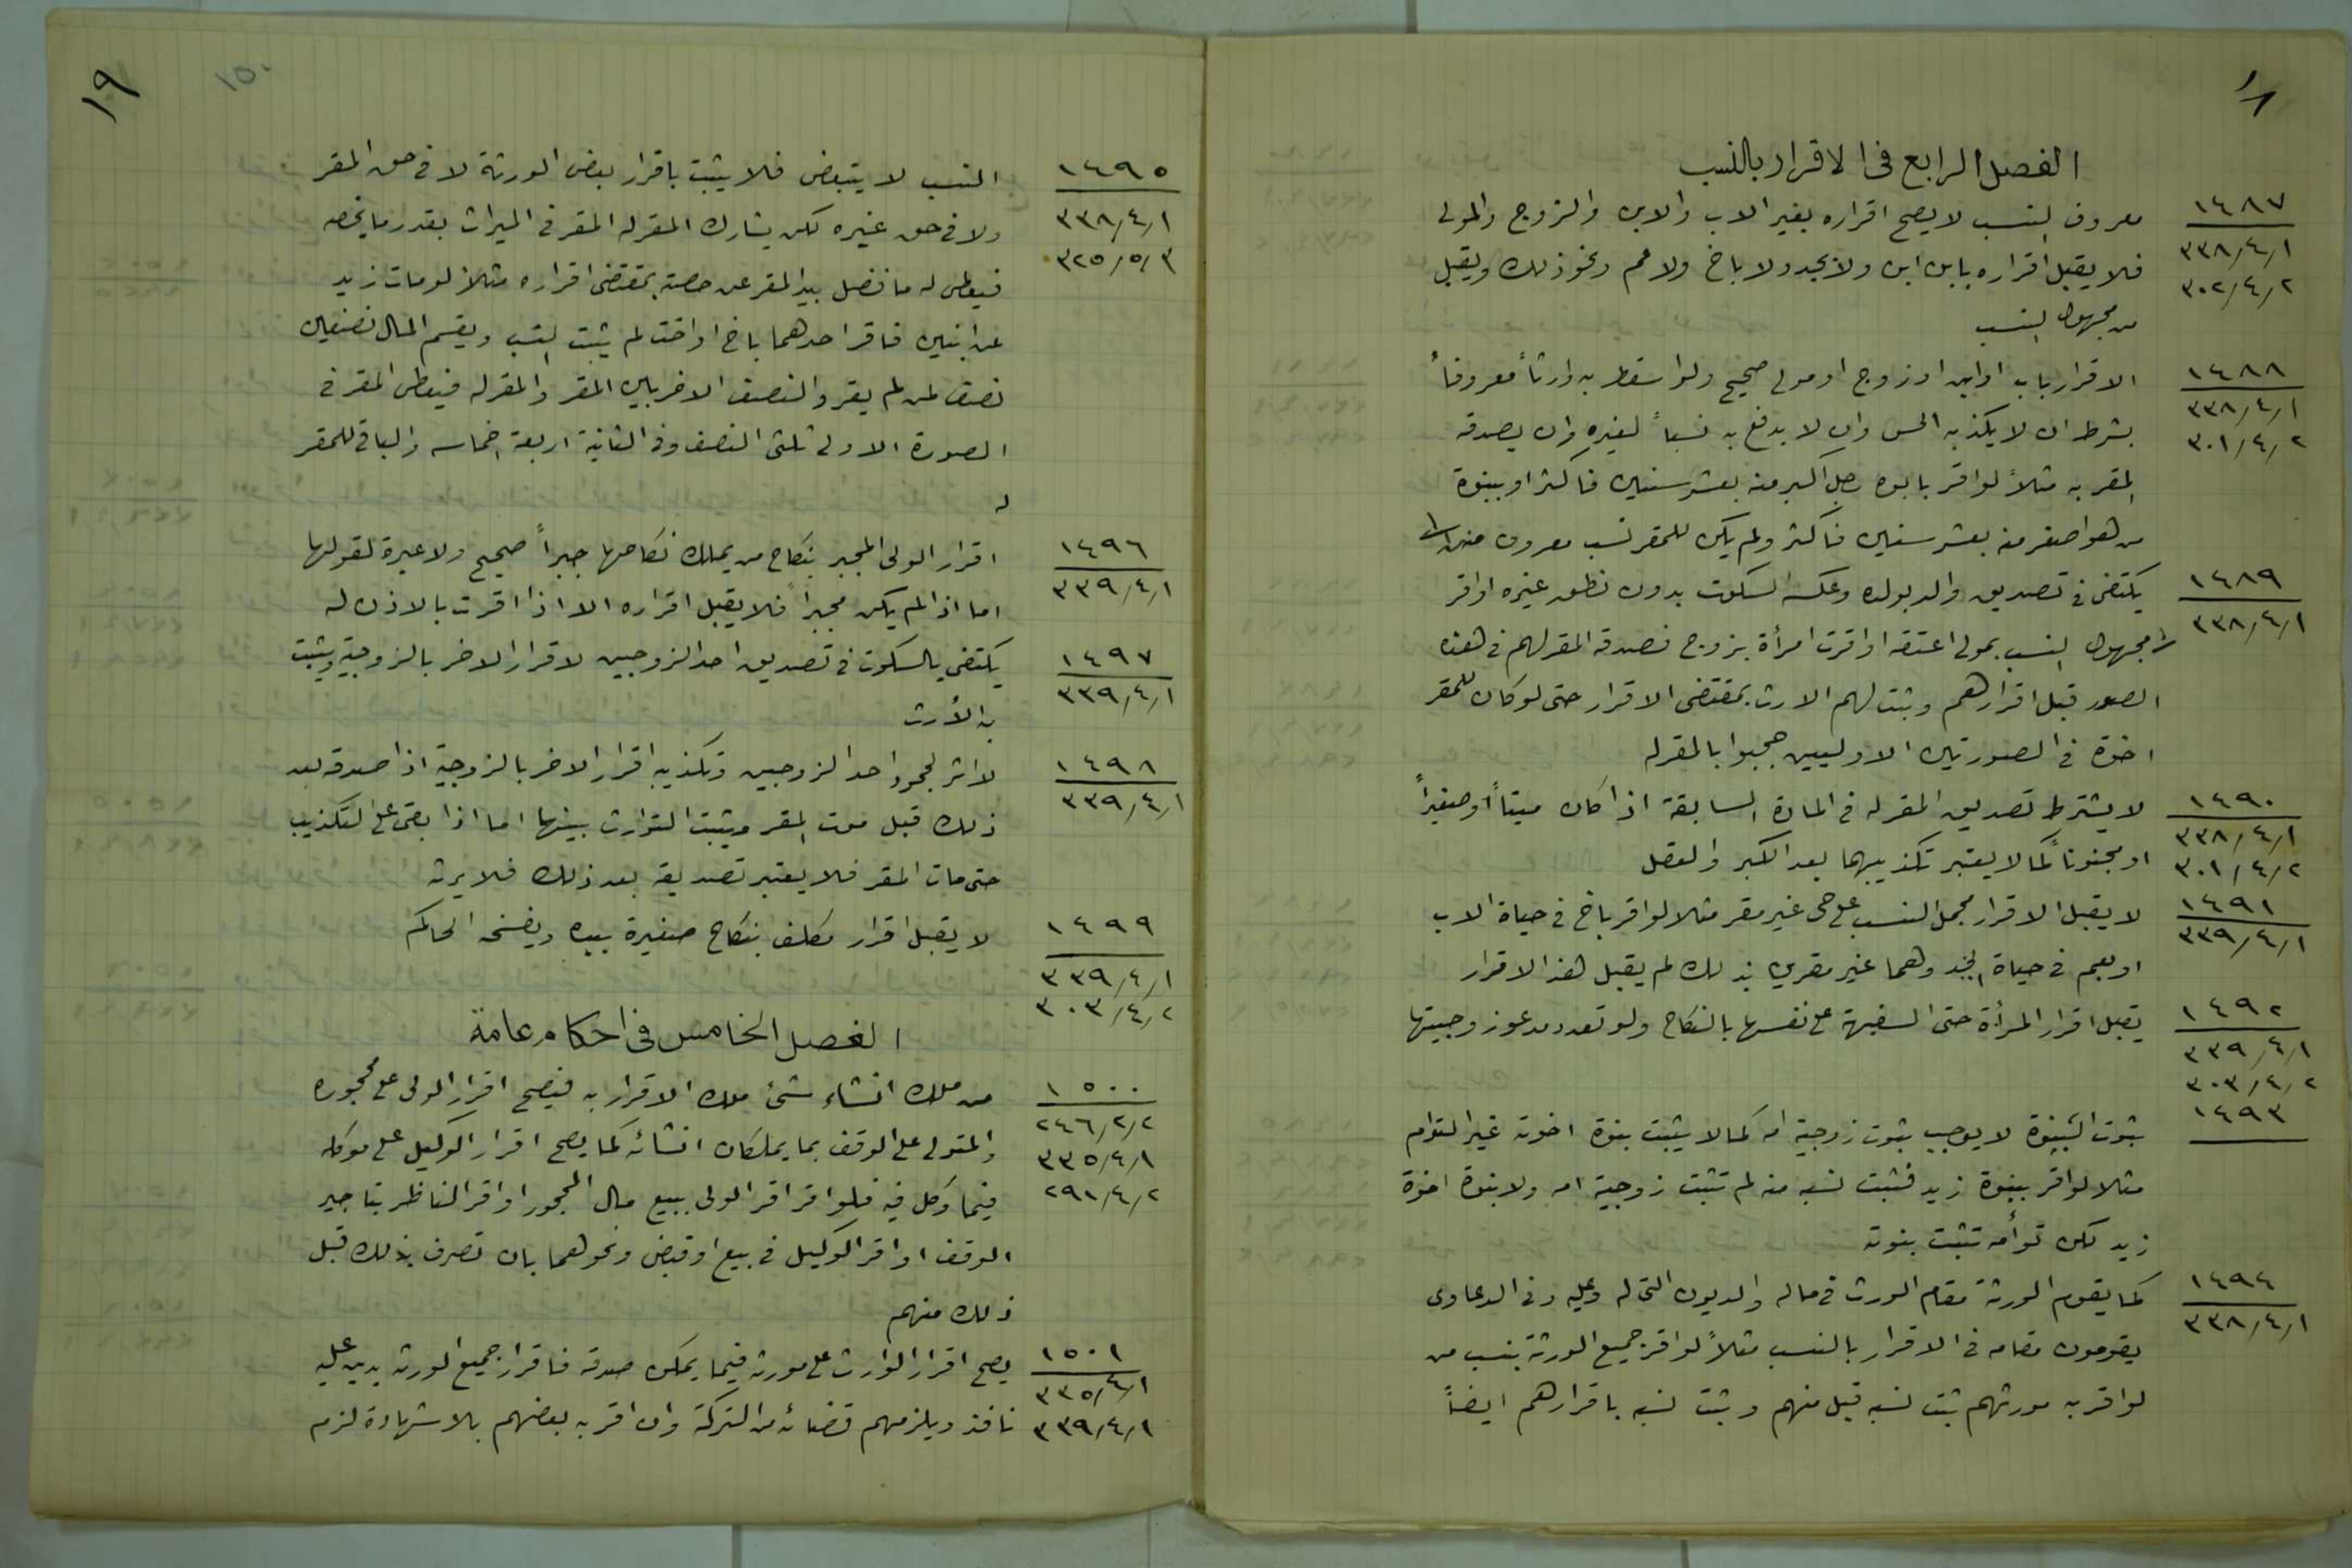 ١٨
الفصل الرابع في الاقرار بالنسب
١٤٨٧
٣٣٨/٤/١
٣٠٢/٤/٢
معروف النسب لا يصح اقراره بغير الاب والابن والزوج والمولى
فلا يقبل اقراره بابن ابن ولا بجد ولا باخ ولا عم ونحو ذلك ويقبل
من مجهول النسب
١٤٨٨
٣٣٨/٤/١
٣٠١/٤/٢
الاقرار باب او ابن او زوج او مولى صحيح ولو اسقط به وارثاً معروفاً
بشرط ان لا يكذبه الحس وان لا يدفع به نسباً لغيره وان يصدقه
المقر به مثلاً لو اقر بابوة رجل اكبر منه بعشر سنين فاكثر او ببنوة
من هو اصغر منه بعشر سنين فاكثر ولم يكن للمقر نسب معروف
١٤٨٩
٣٣٨/٤/١
يكتفى في تصديق والد بولده وعكسه السكوت بدون نطق غيره او اقر
مجهول النسب بمولى اعتقه او اقرت امرأة بزوج فصدقه المقر لهم في هذه
الصور قبل اقرارهم وثبت لهم الارث بمقتضى الاقرار حتى لو كان للمقر
اخوة في الصورتين الاوليين حجبوا بالمقر له
١٤٩٠
٣٣٨/٤/١
٣٠١/٤/٢
لا يشترط تصديق المقر له في المادة السابقة اذا كان ميتاً او صغيراً
او مجنوناً كما لا يعتبر تكذيبهما بعد الكبر والعقل
١٤٩١
٣٣٩/٤/١
لا يقبل الاقرار بحمل النسب على حي غير مقر مثلا لو اقر باخ في حياة الاب
او بعم في حياة الجد وهما غير مقرين بذلك لم يقبل هذا الاقرار
١٤٩٢
٣٣٩/٤/١
٣٠٣/٤/٢
يقبل اقرار المرأة حتى السفيهة على نفسها بالنكاح ولو تعدد مدعو زوجيتها
١٤٩٣
ثبوت البنوة لا يوجب ثبوت زوجية امه كما لا يثبت بنوة اخوته غير التوام
مثلا لو اقر ببنوة زيد فثبت نسبه منه لم تثبت زوجية امه ولا بنوة اخوة
زيد لكن توأمه تثبت بنوته
١٤٩٤
٣٣٨/٤/١
كما يقوم الورثة مقام المورث في ماله والديون التي له وعليه وفي الدعاوى
يقومون مقامه في الاقرار بالنسب مثلاً لو اقر جميع الورثة بنسب من
لو اقر به مورثهم ثبت نسبه قبل منهم وثبت نسبه باقرارهم ايضاً
١٩
١٥٠
١٤٩٥
٣٣٨/٤/١
٣٢٥/٥/٣
النسب لا يتبعض فلا يثبت باقرار بعض الورثة لا في حق المقر
ولا في حق غيره لكن يشارك المقر له المقر في الميراث بقدر ما يخصه
فيعطى له ما فضل بيد المقر عن حصته بمقتضى اقراره مثلاً لو مات زيد
عن ابنين فاقر احدهما باخ او اخت لم يثبت النسب ويقسم المال نصفين
نصف لمن لم يقر والنصف الاخر بين المقر والمقر له فيعطى المقر في
الصورة الاولى ثلثي النصف وفي الثانية اربعة اخماسه والباقي للمقر
له
١٤٩٦
٣٣٩/٤/١
اقرار الولي المجبر بنكاح من يملك نكاحها جبراً صحيح ولا عبرة لقولها
اما اذا لم يكن مجبراً فلا يقبل اقراره الا اذا اقرت بالاذن له
١٤٩٧
٣٣٩/٤/١
يكتفي بالسكوت في تصديق احد الزوجين لاقرار الاخر بالزوجية ويثبت
به الأرث
١٤٩٨
٣٣٩/٤/١
لا اثر لجحود احد الزوجين وتكذيبه اقرار الاخر بالزوجية اذا صدقه بعد
ذلك قبل موت المقر ويثبت التوارث بينهما اما اذا بقي على التكذيب
حتى مات المقر فلا يعتبر تصديقه بعد ذلك فلا يرثه
١٤٩٩
٣٣٩/٤/١
٣٠٣/٤/٢
لا يقبل اقرار مكلف بنكاح صغيرة بيده ويفسخه الحاكم
الفصل الخامس في احكام عامة
١٥٠٠
٢٤٦/٢/٢
٣٣٥/٤/١
٢٩١/٤/٢
من ملك انشاء شئ ملك الاقرار به فيصح اقرار الولي على محجوره
والمتولي على الوقف بما يملكان انشائه كما يصح اقرار الوكيل على موكله
فيما وكل فيه فلو اقر اقر الولي ببيع مال المحجور او اقر الناظر بتاجير
الوقف او اقر الوكيل في بيع او قبض ونحوهما بان تصرف بذلك قبل
ذلك منهم
١٥٠١
٣٣٥/٤/١
٣٣٩/٤/١
يصح اقرار الوارث على مورثه فيما يمكن صدقه فاقرار جميع الورثة بدين عليه
نافذ ويلزمهم قضائه من التركة وان اقر به بعضهم بلا شهادة لزم